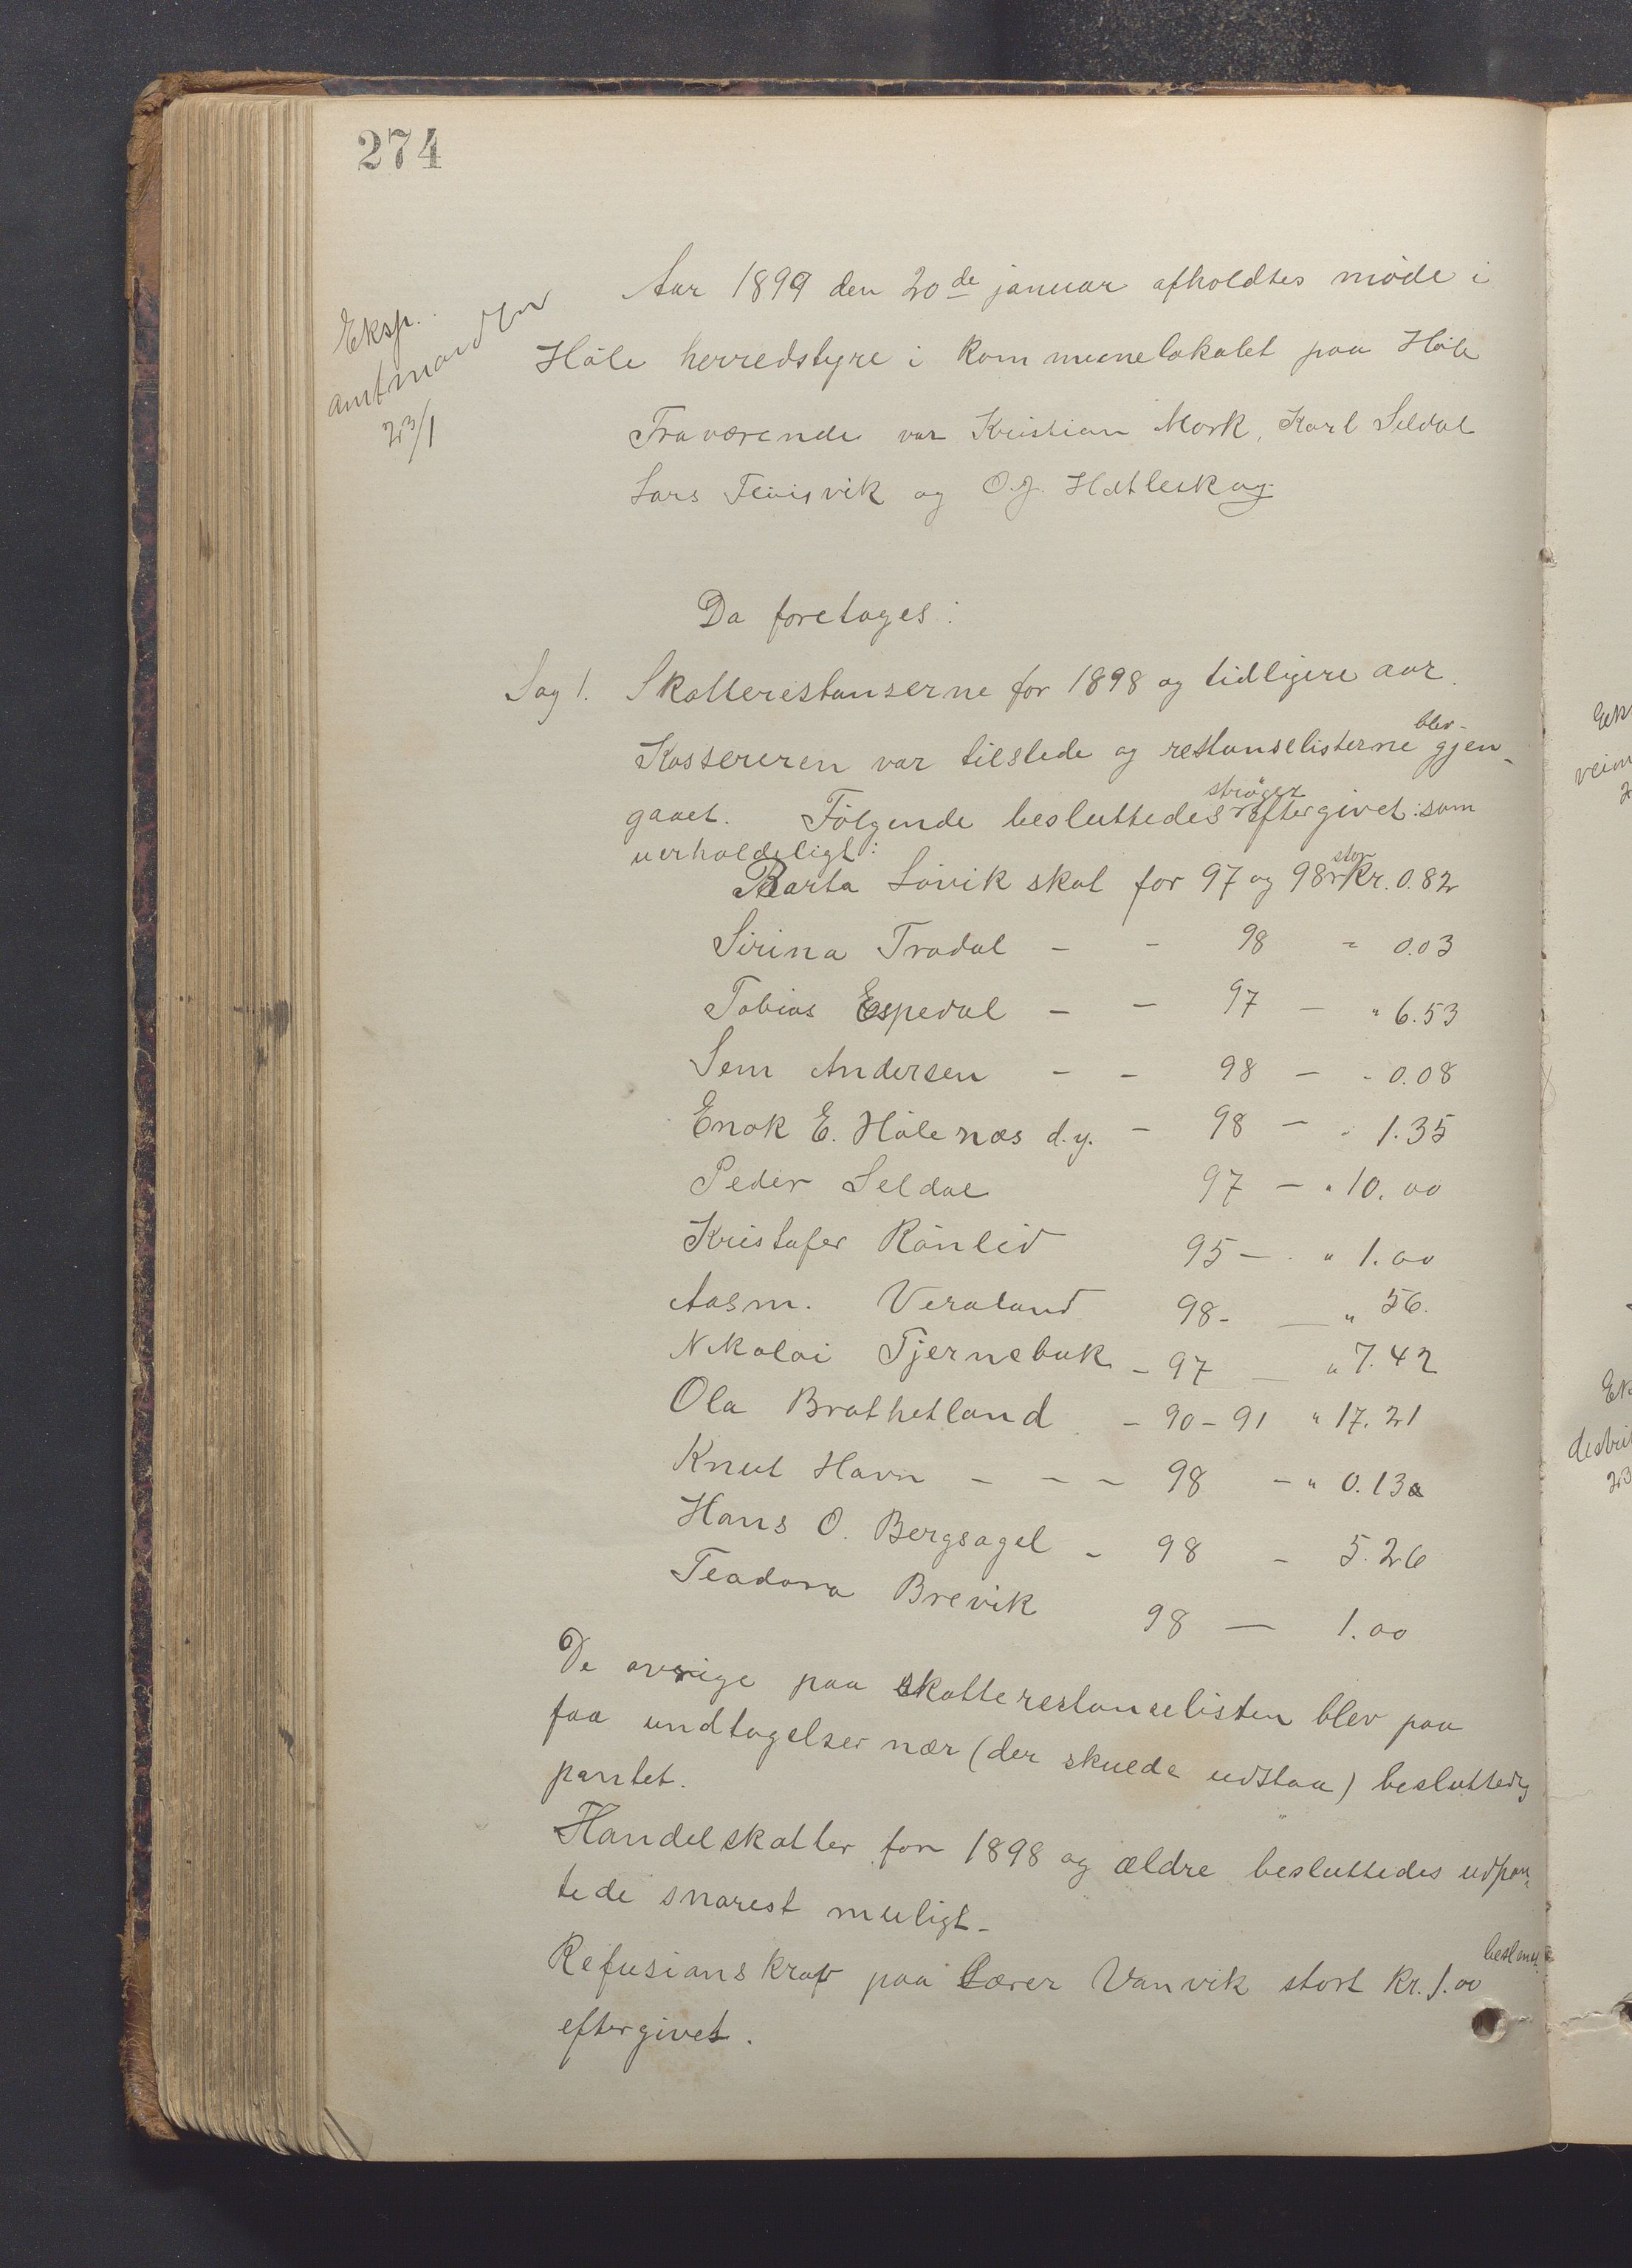 274
Eksp.
amtmanden
23/1
Aar 1899 den 20de januar afholdtes møde i
Høle herredstyre i kommunelokalet paa Høle
Fraværende var Kristian Mork, Karl Seldal
Lars Tennisvik og O.J. Hatleskog
Da foretoges:
Sag 1. Skatterestanserne for 1898 og tidligere aar.
Kassereren var tilstede og restanselisterne blev gjen-
gaaet. Følgende besluttedes strøget eftergivet som
uerholdeligt:
Barta Løvik skat for 97 og 98 stor Kr. 0.82
Sirina Tradal - - 98 - 0.03
Tobias Espedal - - 97 - " 6.53
Sem Andersen - - 98 - - 0.08
Enok E. Hølenæs d.y. - 98 - " 1.35
Peder Seldal 97 - " 10.00
Kristofer Rønlid 95 - " 1.00
Aasm. Veraland 98 - - " 56.
Nikolai Tjernebuk - 97 - " 7.42
Ola Brathetland - 90-91 " 17.21
Knut Havn - - - 98 - " 0.13
Hans O. Bergsagel - 98 - 5.26
Teadora Brevik 98 - 1.00
De øvrige paa skatterestanselisten blev paa
faa undtagelser nær (der skulde udstaa) besluttedes
pantet.
Handelskatter for 1898 og ældre besluttedes udpan-
tede snarest muligt-
Refusionskrav paa Lærer Vanvik stort kr. 1.00
eftergivet.